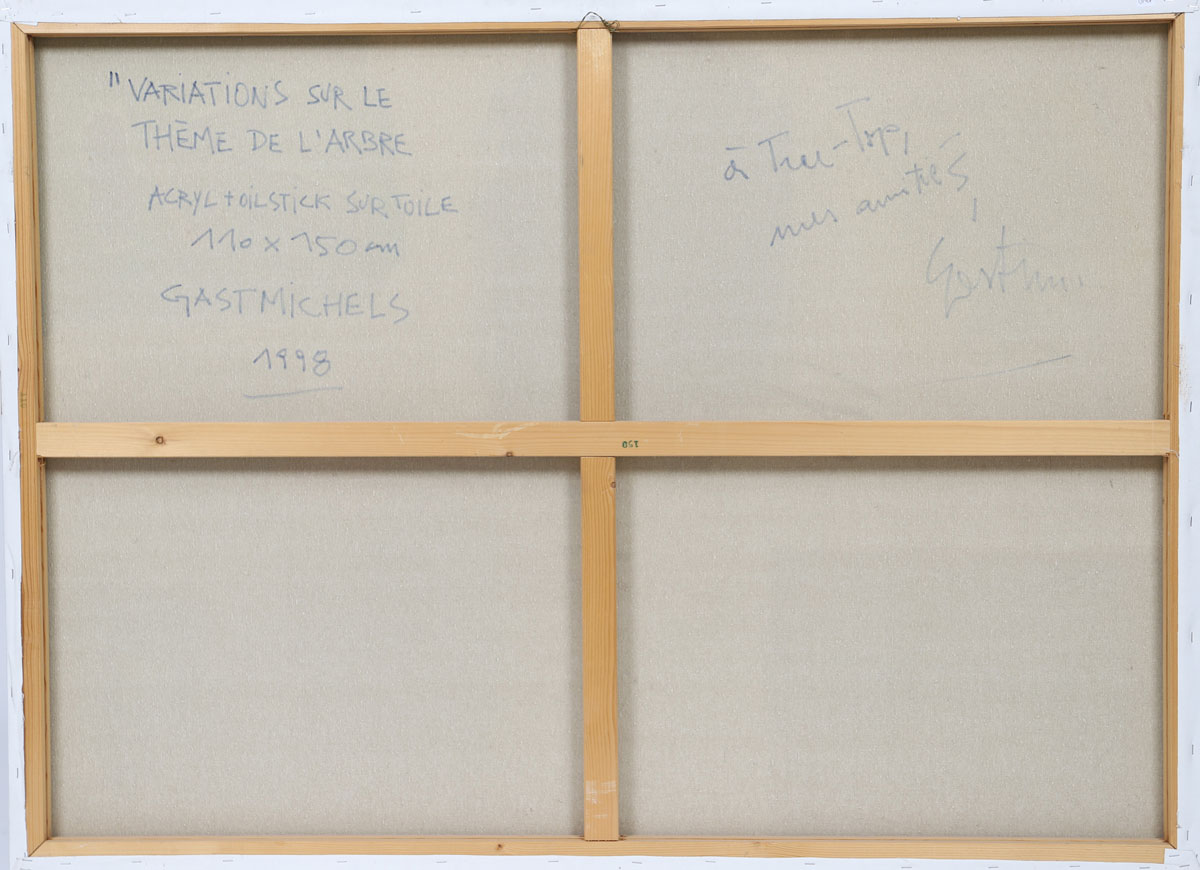 "VARIATIONS SUR LE
THÈME DE L'ARBRE
ACRYL + OILSTICK SUR TOILE
110 x 150 cm
GAST MICHELS
1998
à Tree-Top,
mes amitiés,
Gast
150